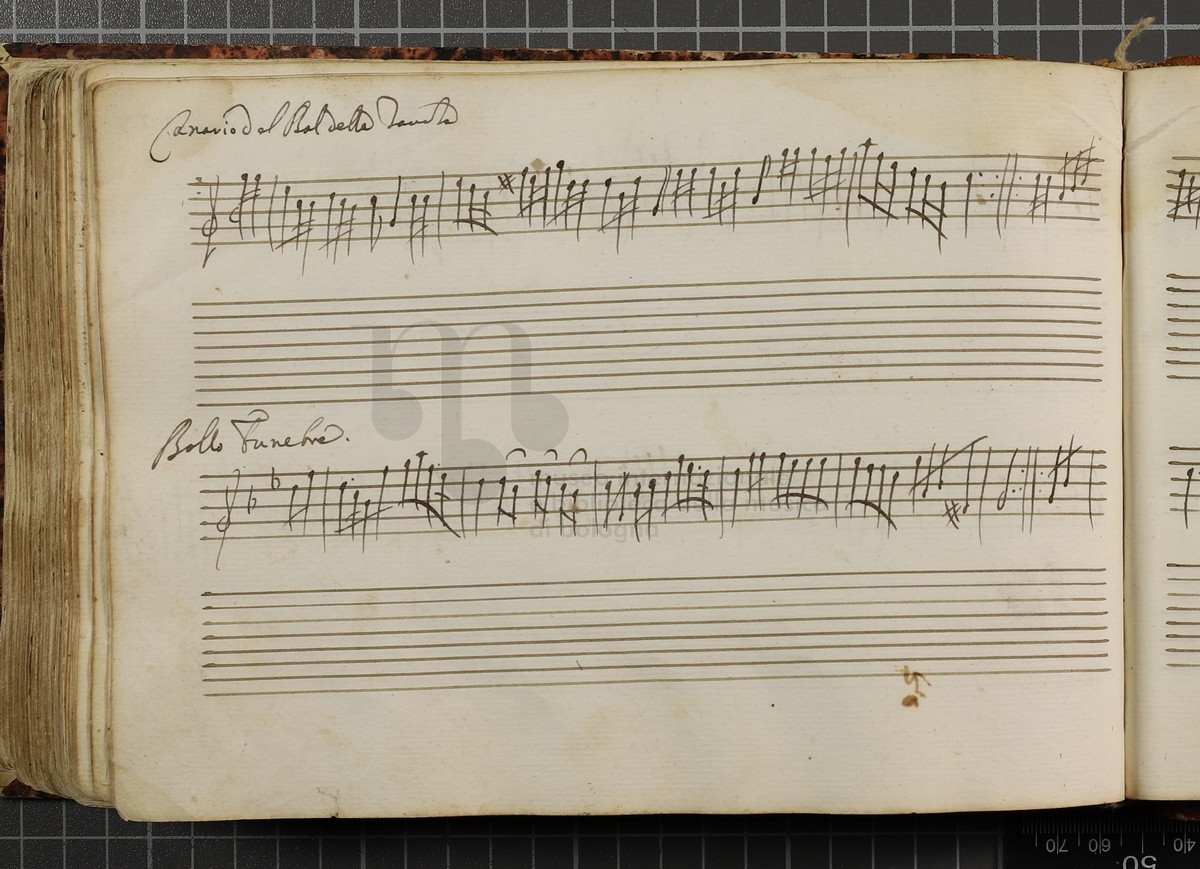 Canario del Bal della Tavola
Ballo Funebre.
museo internazionale
di bologna
70 60 50 40